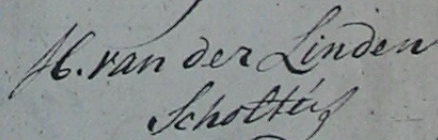 H. van der Linden
Scholtus